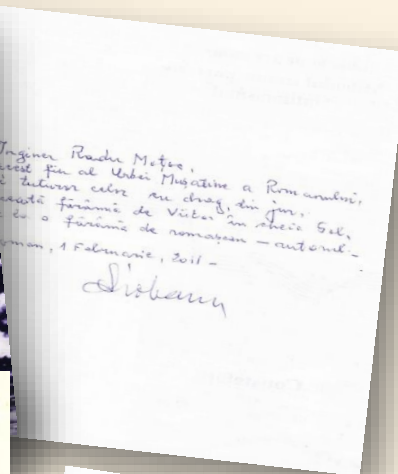 Inginer Radu Moțoc,
acest fiu al Urbei Mușatine a Romanului,
și tuturor celor cu drag, din jur,
această fărâmă de Viitor în cheia Sol,
de la o fărâmă de romașcan – autorul –
Roman, 1 Februarie, 2011 –